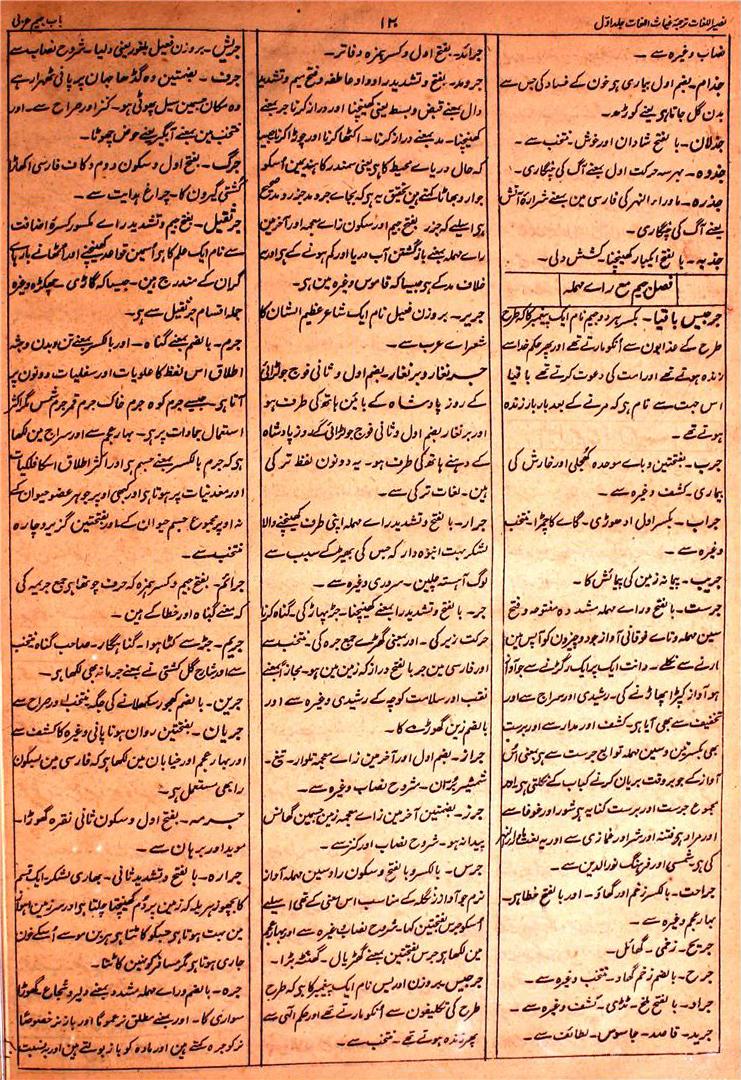 نصیر اللغات ترجمہ غیاث اللغات جلد اول
۱۲
باب جیم عربی
نصاب وغیرہ سے۔
جذام۔ بضم اول بیماری ہو خون کے فساد کی جس سے
بدن گل جاتا ہی یعنے کوڑھ۔
جذلان۔ بالفتح شادان اور خوش۔ منتخب سے۔
جذوہ۔ بہر سہ حرکت اول بمعنے آگ کی چنگاری۔
جذرہ۔ ماوراء النہر کی فارسی مین بمعنے شرارۂ آتش
یعنے آگ کی چنگاری۔
جذبہ۔ بالفتح ایکبار کھینچنا۔ کشش دلی۔
فصل جیم مع راے مہملہ
جرجیس باقیا۔ بکسر ہر دو جیم نام ایک پیغمبر کا کہ طرح
طرح کے عذابون سے اُنکو مارتے تھے اور پھر حکم خدا سے
زندہ ہوتے تھے اور امت کی دعوت کرتے تھے باقیا
اس جہت سے نام ہی کہ مرنے کے بعد بار بار زندہ
ہوتے تھے۔
جرب۔ بفتحتین و باے موحدہ کھجلی اور خارش کی
بیماری۔ کشف وغیرہ سے۔
جراب۔ بکسر اول ادھوڑی۔ گاے کا چمڑا۔ منتخب
وغیرہ سے۔
جریب۔ پیمانہ زمین کی پیمائش کا۔
جرست۔ بالفتح و راے مہملہ مشددہ مفتوحہ و فتح
سین مہملہ و تاے فوقانی آواز جو دو چیزون کو آپس مین
مارنے سے نکلے۔ دانت ایک پر ایک رگڑنے سے جو آواز
ہو آواز کپڑا پھاڑنے کی۔ رشیدی اور سراج سے اور
تخفیف سے بھی آیا ہی۔ کشف اور مدار سے اور برست
بھی بکسرتین و سین مہملہ توابع جرست سے ہی بمعنی اُس
آواز کے جو بروقت بریان کرنے کباب کے نکلتی ہی اور
مجموع جرست اور برست کنایہ ہی شور اور غوغا سے
اور مراد ہی فتنہ اور شر اور غمازی سے اور یہ لغت
کی ہی شمسی اور فرہنگ نور الدین سے۔
جراحت۔ بالکسر زخم اور گھاؤ۔ اور بالفتح خطا ہی۔
بہار عجم وغیرہ سے۔
جریح۔ زخمی۔ گھائل۔
جرح۔ بالضم زخم گھاو۔ منتخب وغیرہ سے۔
جراد۔ بالفتح ملخ۔ ٹڈی۔ کشف وغیرہ سے۔
جرید۔ قاصد۔ جاسوس۔ لطائف سے۔
جرائد۔ بفتح اول و کسر ہمزہ دفاتر۔
جرومد۔ بفتح و تشدید را و واو عاطفہ و فتح میم و تشدید
دال بمعنے قبض و بسط یعنی کھینچنا اور دراز کرنا جر بمعنے
کھینچنا۔ مد بمعنے دراز کرنا۔ اکٹھا کرنا اور چوڑا کرنا جیسا
کہ حال دریاے محیط کا ہی یعنی سمندر کا ہند مین اُسکو
جوار و بھاٹا کہتے ہین تحقیق یہ ہی کہ بجاے جرومد جزرومد صحیح
ہی اسلیے کہ جزر۔ بفتح جیم اور سکون زاے معجمہ اور آخر مین
راے مہملہ بمعنے بازگشتن آب دریا اور کم ہونے کے ہی اور یہ
خلاف مد کے ہی جیسا کہ قاموس وغیرہ مین ہی۔
جریر۔ بروزن فعیل نام ایک شاعر عظیم الشان کا
شعراے عرب سے۔
جرنغار و برنغار۔ بضم اول و ثانی فوج جو لڑائی
کے روز پادشاہ کے بائین ہاتھ کی طرف ہو
اور برنغار بضم اول و ثانی فوج جو لڑائی کے روز پادشاہ
کے دہنے ہاتھ کی طرف ہو۔ یہ دونون لفظ ترکی
ہین۔ لغات ترکی سے۔
جرار۔ بالفتح و تشدید راے مہملہ اپنی طرف کھینچنے والا
لشکر بہت انبوہ دار کہ جس کی بھیڑ کے سبب سے
لوگ آہستہ چلین۔ سروری وغیرہ سے۔
جر۔ بالفتح و تشدید را بمعنے کھینچنا۔ جڑ پہاڑ کی۔ گناہ کرنا
حرکت زیر کی۔ اور بمعنی گھڑے جمع جرہ کی۔ منتخب سے
اور فارسی مین جر بالفتح دراز کہ زمین مین ہو۔ مجازاً بمعنے
نقب اور سلامت کوچہ کے رشیدی وغیرہ سے اور
بالضم زین گھوڑے کا۔
جراز۔ بضم اول اور آخر مین زاے معجمہ تلوار۔ تیغ۔
شمشیر بُرّان۔ شروح نصاب وغیرہ سے۔
جرز۔ بضمتین آخر مین زاے معجمہ زمین جسمین گھانس
پیدا نہو۔ شروح نصاب اور کنز سے۔
جرس۔ بالکسر و بالفتح و سکون را و سین مہملہ آواز
نرم جو آواز زنگلہ کے مناسب اس معنی کے تھی اسلیے
اُسکو جرس بفتحتین کہا۔ شروح نصاب وغیرہ سے اور بہار عجم
مین لکھا ہی جرس بفتحتین بمعنے گھڑیال۔ گھنٹہ بڑا۔
جرجیس۔ بروزن ادریس نام ایک پیغمبر کا ہی کہ طرح
طرح کی تکلیفون سے اُنکو مارتے تھے اور حکم الٰہی سے
پھر زندہ ہوتے تھے۔ منتخب سے۔
جریش۔ بروزن فعیل بلغور یعنی دلیا۔ شروح نصاب سے
جرف۔ بضمتین وہ گڈھا جہان پر پانی ٹھہرا رہے
وہ مکان جسمین سیل پھوٹی ہو۔ کنز اور صراح سے۔ اور
منتخب مین بمعنے آبگیر یعنے حوض چھوٹا۔
جرگ۔ بفتح اول و سکون دوم و کاف فارسی اکھاڑا
کشتی گیرون کا۔ چراغ ہدایت سے۔
جرثقیل۔ بفتح جیم و تشدید راے مکسور کسرۂ اضافت
سے نام ایک علم کا ہی اُسمین قواعد کھینچنے اور اُٹھانے بارہاے
گران کے مندرج ہین۔ جیسا کہ گاڑی چھکڑہ وغیرہ
جملہ اقسام جرثقیل سے ہی۔
جرم۔ بالضم بمعنے گناہ۔ اور بالکسر بمعنے تن و بدن و جثہ
اطلاق اس لفظ کا علویات اور سفلیات دونون پر
آتا ہی۔ جیسے جرم کوہ جرم خاک جرم قمر جرم شمس مگر اکثر
استعمال جمادات پر ہی۔ بہار عجم سے اور سراج مین لکھا
ہی کہ جرم بالکسر بمعنے جسم ہی اور اکثر اطلاق اسکا فلکیات
اور معدنیات پر ہوتا ہی اور کبھی اوپر جوہر عضو حیوان کے
نہ اوپر مجموع جسم حیوان کے۔ اور بفتحتین گزیر و چارہ
منتخب سے۔
جرائم۔ بفتح جیم و کسر ہمزہ کہ حرف چوتھا ہی جمع جریمہ کی
کہ بمعنے گناہ اور خطا کے ہین۔
جریم۔ جڑ سے کٹا ہوا۔ گناہگار۔ صاحب گناہ منتخب
سے اور شارح گل کشتی نے بمعنے جرمانہ بھی لکھا ہی۔
جرین۔ بالضم کھجور سکھلانے کی جگہ منتخب اور صراح سے
جریان۔ بفتحتین روان ہونا پانی وغیرہ کا کشف سے
اور بہار عجم اور خیابان مین لکھا ہی کہ فارسی مین بسکون
را بھی مستعمل ہی۔
جرمہ۔ بفتح اول و سکون ثانی نقرہ گھوڑا۔
موید اور برہان سے۔
جرارہ۔ بالفتح و تشدید ثانی۔ بھاری لشکر۔ ایک قسم
کا بچھو زہریلہ کہ زمین پر دُم کھینچتا چلتا ہی اور سرزمین اہواز
مین بہت ہوتا ہی جسکو کاٹتا ہی ہر بن مو سے اُسکے خون
جاری ہوتا ہی مگر مسافر کو نہین کاٹتا۔
جرہ۔ بالضم و راے مہملہ مشدد بمعنے دلیر و شجاع۔ گھوڑا
سواری کا۔ اور بمعنے مطلق نر عموماً اور باز نر خصوصاً
نر کو جرہ کہتے ہین اور مادہ کو باز بولتے ہین اور یہ نسبت